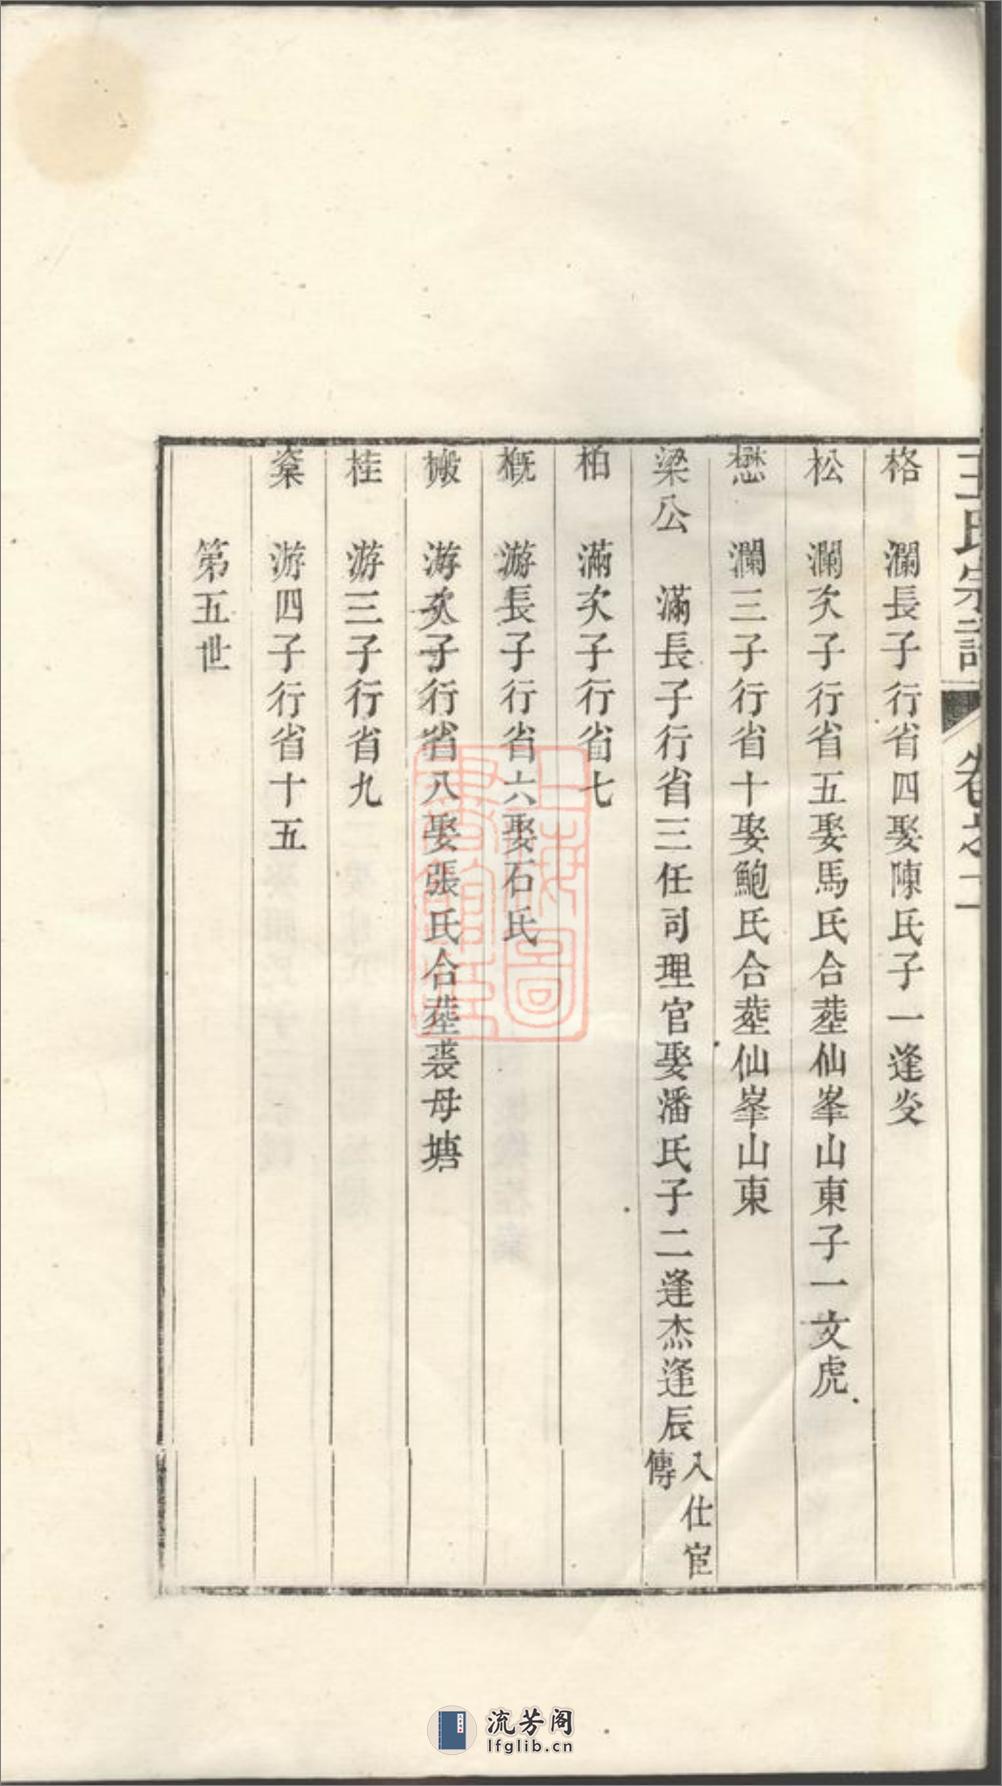 王氏宗譜 卷之一
格 瀾長子行省四娶陳氏子一逢炎
松 瀾次子行省五娶馬氏合塟仙峯山東子一文虎
懋 瀾三子行省十娶鮑氏合塟仙峯山東
梁公 滿長子行省三任司理官娶潘氏子二逢杰逢辰入仕宦傳
柏 滿次子行省七
概 游長子行省六娶石氏
搬 游次子行省八娶張氏合塟裘母塘
桂 游三子行省九
游四子行省十五
第五世
上海圖書館藏
流芳阁
lfglib.cn